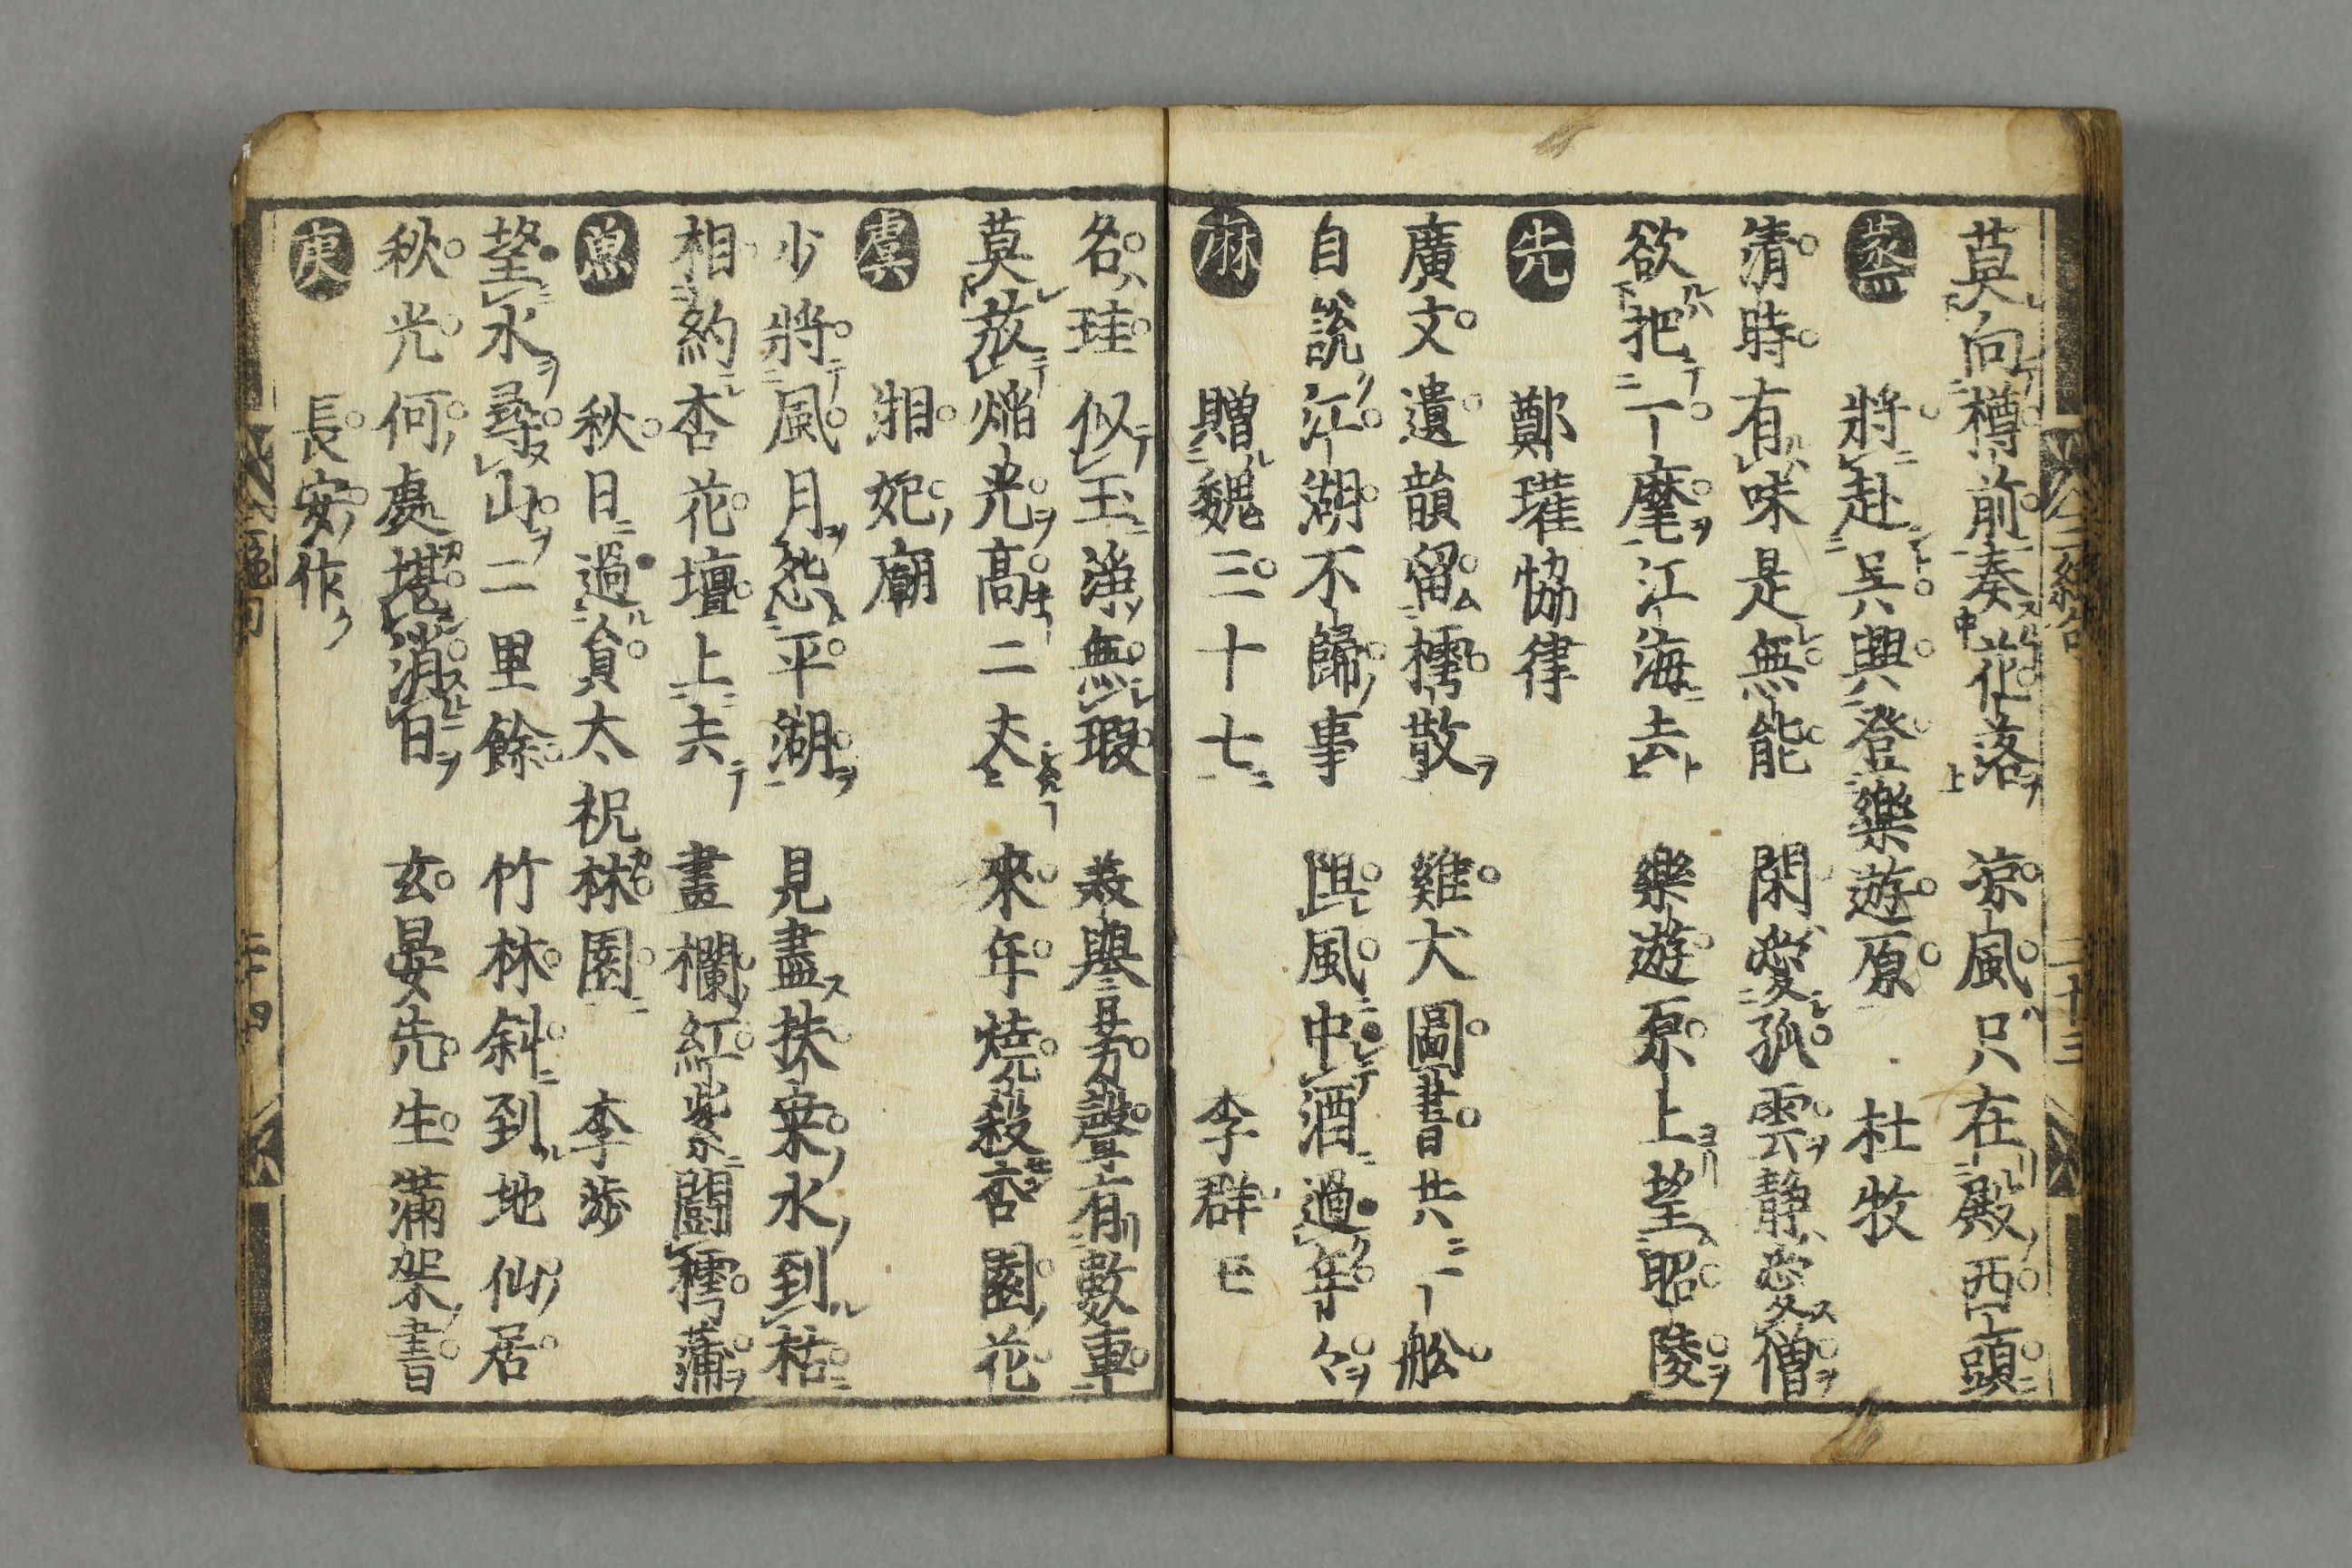 莫向樽前奏花落　涼風只在殿西頭
蒸　將赴吳興登樂遊原　杜牧
清時有味是無能　閑愛孤雲靜愛僧
欲把一麾江海去　樂遊原上望昭陵
先　鄭瓘恊律
廣文遺韻留樗散　雞犬圖書共一舩
自說江湖不歸事　阻風中酒過年々
麻　贈魏三十七　李群玉
名珪似玉淨無瑕　美譽芳聲有數車
莫放焰光高二丈　來年燒殺杏園花
虞　湘妃廟
少將風月怨平湖　見盡扶桒水到枯
相約杏花壇上去　畫欄紅紫鬪樗蒲
魚　秋日過貟太祝林園　李渉
望水尋山二里餘　竹林斜到地仙居
秋光何處堪消日　玄晏先生滿架書
庚　長安作
三絶句　二十三
三絶句　二十四